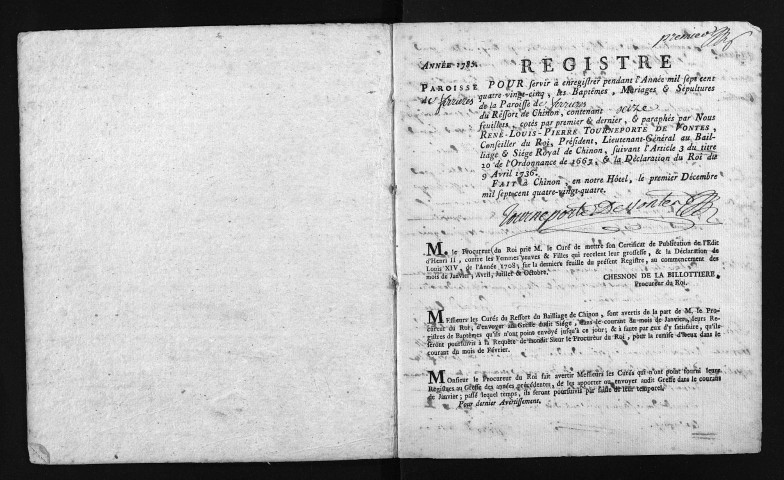 premier
ANNÉE 1785.
REGISTRE
PAROISSE
de ferrieres
POUR servir à enregistrer pendant l'Année mil sept cent
quatre-vingt-cinq, les Baptêmes, Mariages & Sépultures
de la Paroisse de ferrieres
du Ressort de Chinon, contenant seize
feuillets, cotés par premier & dernier, & paraphés par Nous
RENÉ-LOUIS-PIERRE TOURNEPORTE DE VONTES,
Conseiller du Roi, Président, Lieutenant-Général au Bail-
liage & Siége Royal de Chinon, suivant l'Article 3 du titre
20 de l'Ordonnance de 1667, & la Déclaration du Roi du
9 Avril 1736.
FAIT à Chinon, en notre Hôtel, le premier Décembre
mil sept cent quatre-vingt-quatre.
Tourneporte De Vontes
M. le Procureur du Roi prie M. le Curé de mettre son Certificat de Publication de l'Edit
d'Henri II, contre les Femmes veuves & Filles qui recelent leur grossesse, & la Déclaration de
Louis XIV, de l'Année 1708, sur la derniere feuille du présent Registre, au commencement des
mois de Janvier, Avril, Juillet & Octobre.
CHESNON DE LA BILLOTTIERE,
Procureur du Roi.
MEssieurs les Curés du Ressort du Bailliage de Chinon, sont avertis de la part de M. le Pro-
cureur du Roi, d'envoyer au Greffe dudit Siége, dans le courant du mois de Janvier, leurs Re-
gistres de Baptêmes qu'ils n'ont point envoyé jusqu'à ce jour; & à faute par eux d'y satisfaire, qu'ils
seront poursuivis à la Requête de mondit Sieur le Procureur du Roi, pour la remise d'iceux dans le
courant du mois de Février.
MOnsieur le Procureur du Roi fait avertir Messieurs les Curés qui n'ont point fourni leurs
Registres au Greffe des années précédentes, de les apporter ou envoyer audit Greffe dans le courant
de Janvier; passé lequel temps, ils seront poursuivis par saisie de leur temporel.
Pour dernier Avertissement.